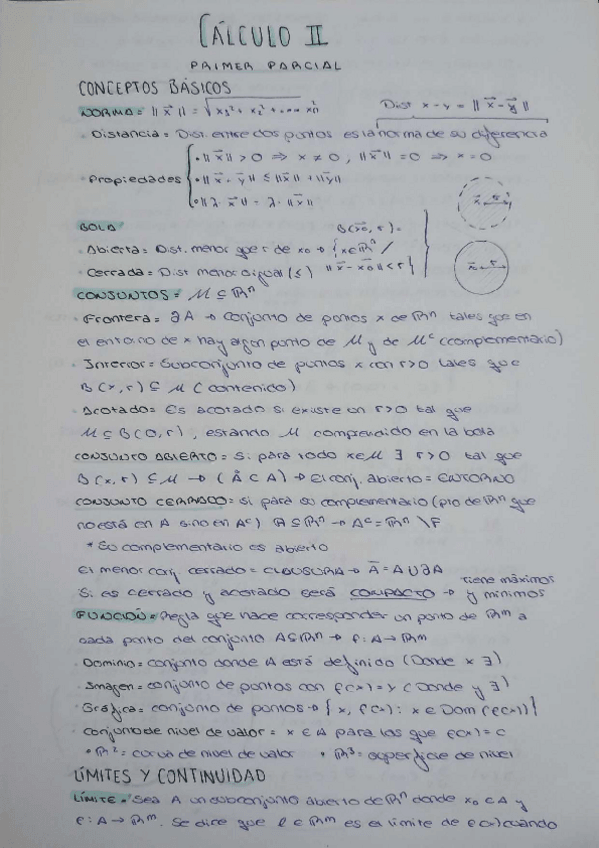 CÁLCULO II
PRIMER PARCIAL
CONCEPTOS BÁSICOS
NORMA = ||x⃗|| = √x₁² + x₂² + ... xₙ² Dist x-y = ||x⃗-y⃗||
· Distancia = Dist. entre dos puntos es la norma de su diferencia
· ||x⃗|| > 0 ⇒ x ≠ 0, ||x⃗|| = 0 ⇒ x = 0
· Propiedades · ||x⃗ · y⃗|| ≤ ||x⃗|| + ||y⃗||
· ||λ · x⃗|| = λ · ||x⃗||
BOLA B(x₀, r) =
· Abierta = Dist. menor que r de x₀ → {x∈ℝⁿ /
· Cerrada = Dist menor o igual (≤) ||x⃗ - x₀|| < r}
CONJUNTOS = M ⊆ ℝⁿ
· Frontera = ∂A → Conjunto de puntos x de ℝⁿ tales que en
el entorno de x hay algún punto de M y de Mᶜ (complementario)
· Interior = Subconjunto de puntos x con r>0 tales que
B(x, r) ⊆ M (contenido)
· Acotado = Es acotado si existe un r>0 tal que
M ⊆ B(0, r), estando M comprendido en la bola
CONJUNTO ABIERTO = Si para todo x∈M ∃ r>0 tal que
B(x, r) ⊆ M → (Å ⊂ A) → El conj. abierto = ENTORNO
CONJUNTO CERRADO = si para su complementario (pto de ℝⁿ que
no está en A sino en Aᶜ) A ⊆ ℝⁿ → Aᶜ = ℝⁿ \ F
* Su complementario es abierto
El menor conj. cerrado = CLAUSURA → Ā = A ∪ ∂A
Si es cerrado y acotado será COMPACTO → tiene máximos y mínimos
FUNCIÓN = Regla que hace corresponder un punto de ℝᵐ a
cada punto del conjunto A⊆ℝⁿ → f: A → ℝᵐ
· Dominio = conjunto donde A está definido (Donde x ∃)
· Imagen = conjunto de puntos con f(x) = y (Donde y ∃)
· Gráfica = conjunto de puntos → {x, f(x) : x ∈ Dom(f(x))}
· Conjunto de nivel de valor = x ∈ A para los que f(x) = c
* ℝ² = curva de nivel de valor * ℝ³ = superficie de nivel
LÍMITES Y CONTINUIDAD
LÍMITE = Sea A un subconjunto abierto de ℝⁿ donde x₀ ∈ A y
f: A → ℝᵐ. Se dice que l ∈ ℝᵐ es el límite de f(x) cuando